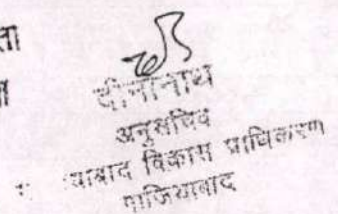 ता
दीनानाथ
अनुसचिव
याबाद विकास प्राधिकरण
गाजियाबाद